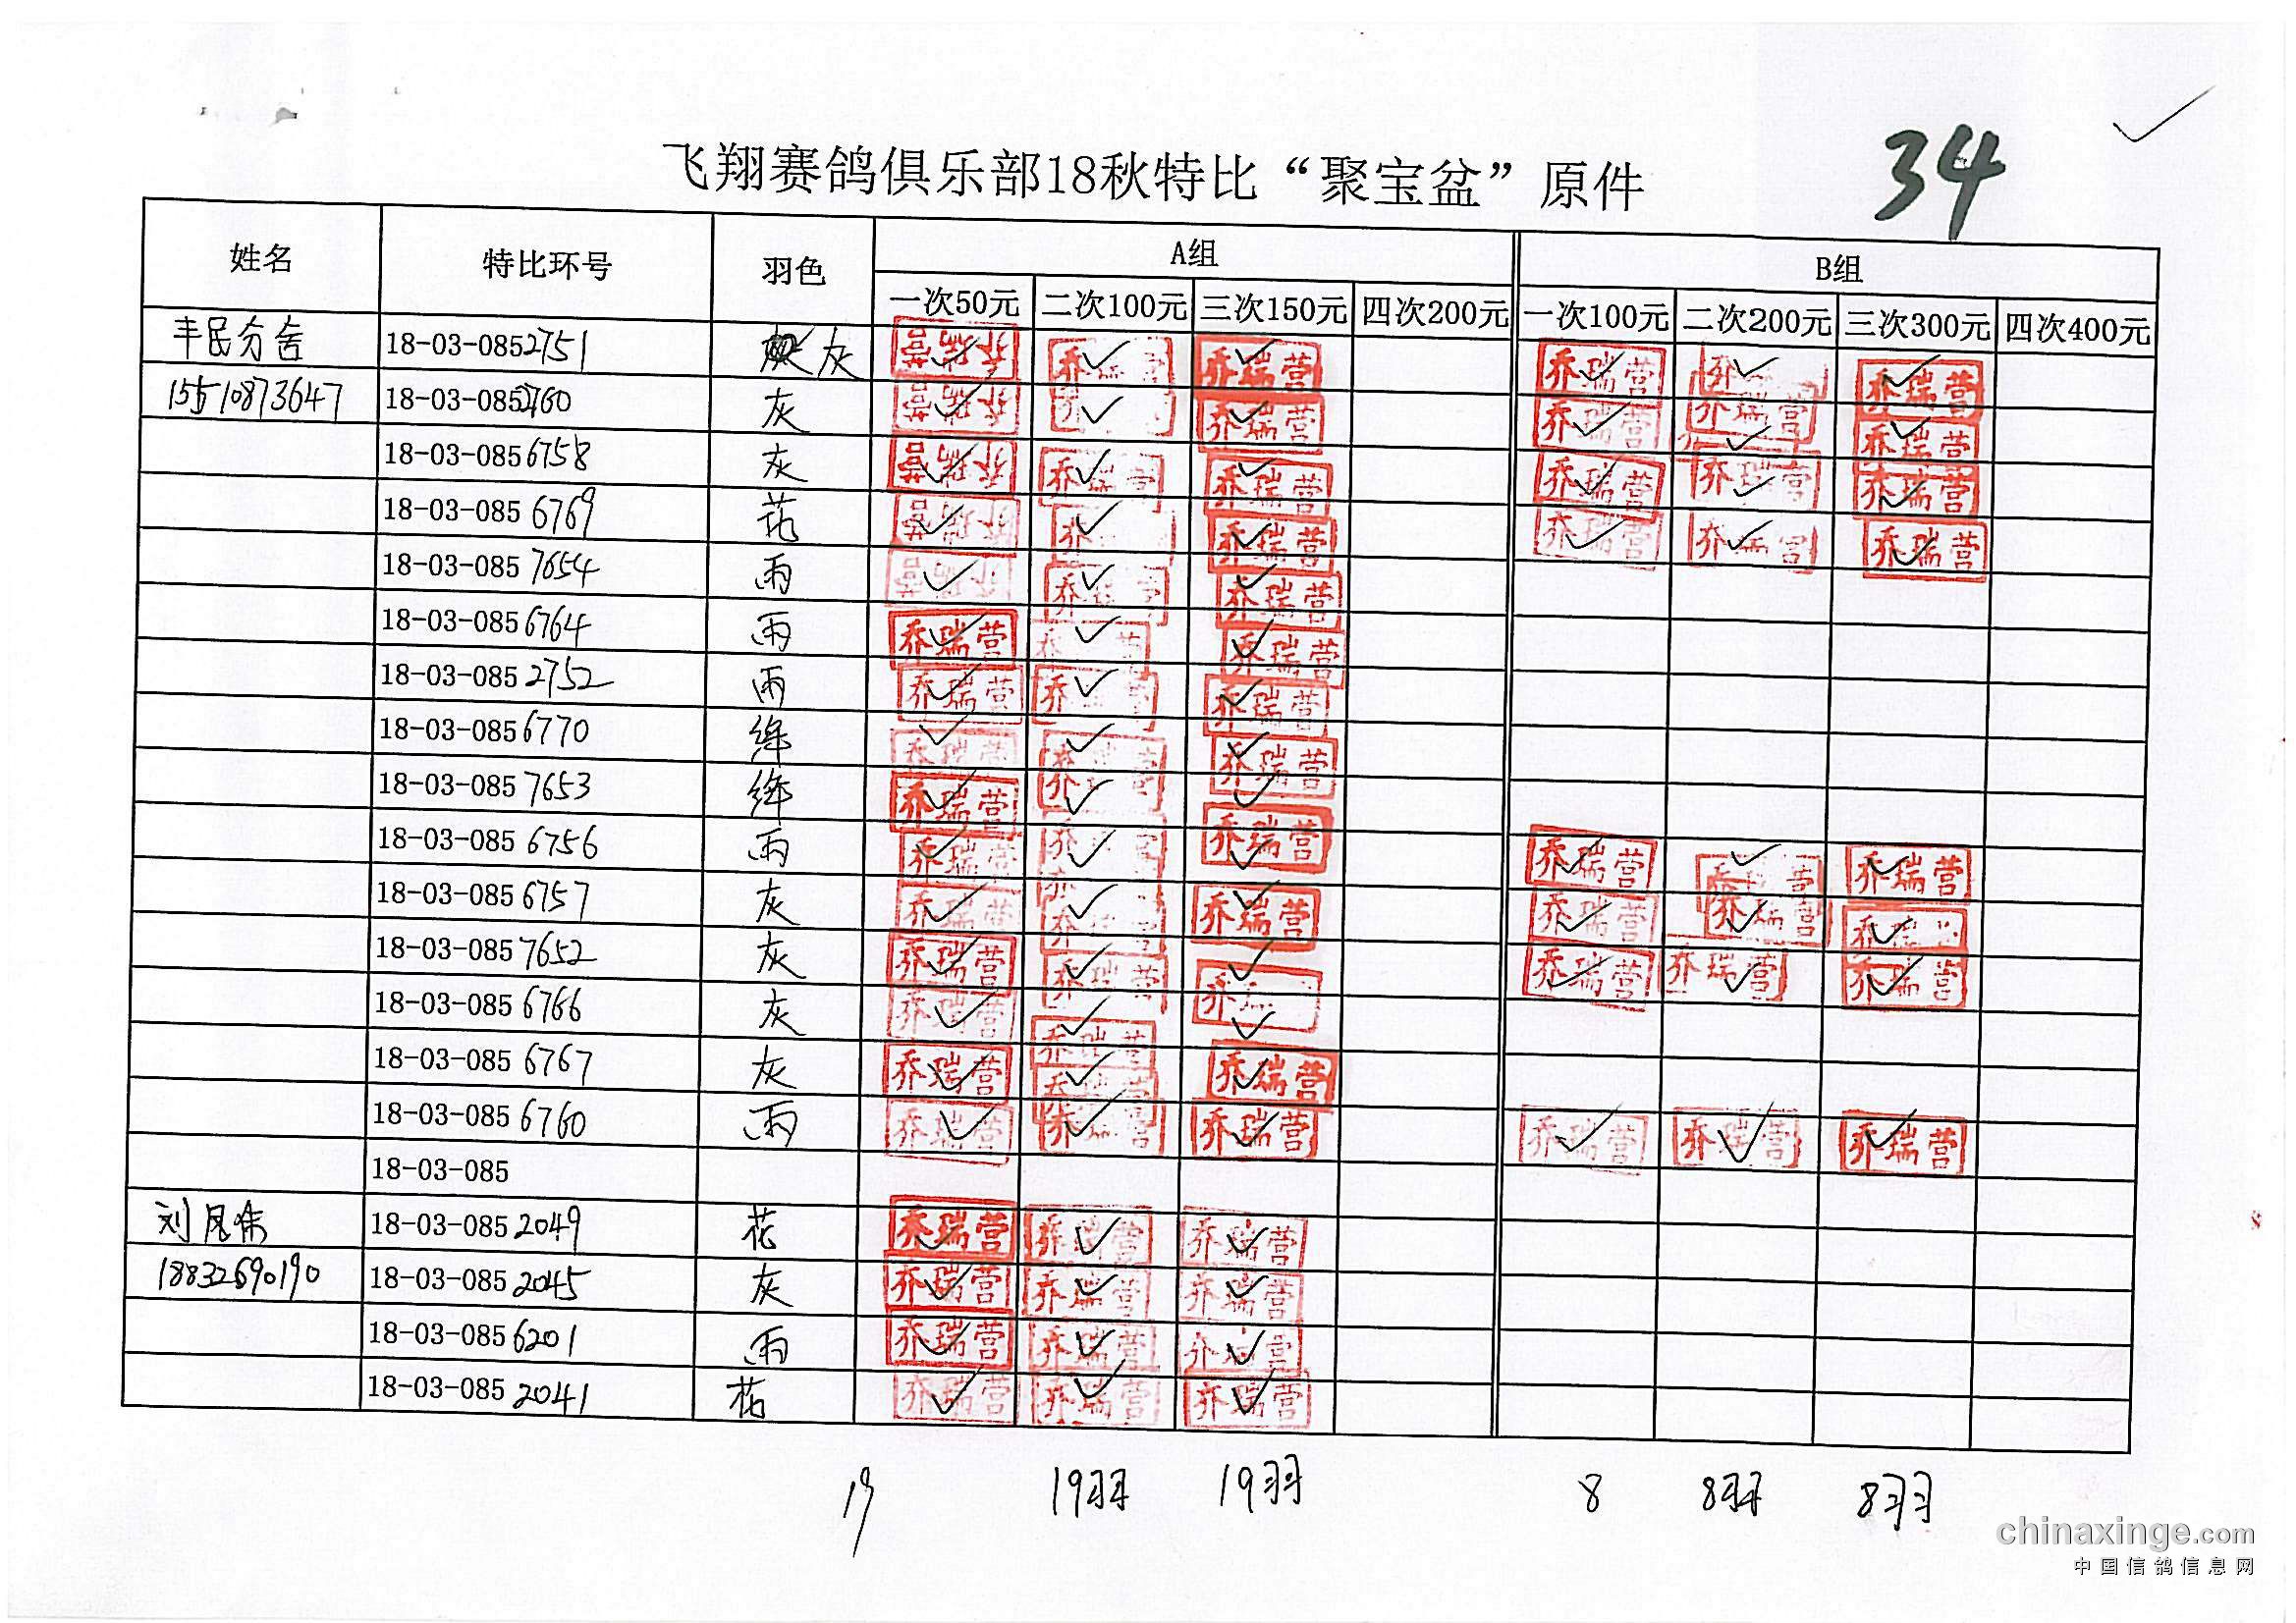 34
飞翔赛鸽俱乐部18秋特比“聚宝盆”原件
姓名 特比环号 羽色 A组 B组
一次50元 二次100元 三次150元 四次200元 一次100元 二次200元 三次300元 四次400元
丰民 18-03-0852751 灰 乔瑞营 乔瑞营 乔瑞营 乔瑞营 乔 乔瑞营
15510873647 18-03-0852760 灰 乔瑞营 乔瑞营 乔瑞营 乔瑞营 乔瑞营
18-03-0856758 灰 乔瑞营 乔瑞营 乔瑞营 乔瑞营 乔瑞营 乔瑞营
18-03-0856769 花 乔瑞营 乔 乔瑞营 乔瑞营 乔瑞营 乔瑞营
18-03-0857654 雨 乔瑞营 乔瑞营 乔瑞营
18-03-0856764 雨 乔瑞营 乔 营 乔瑞营
18-03-0852752 雨 乔瑞营 乔 乔瑞营
18-03-0856770 绛 乔瑞营 乔瑞营 乔瑞营
18-03-0857653 绛 乔瑞营 乔瑞营
18-03-0856756 雨 乔瑞营 乔 乔瑞营 乔瑞营 乔瑞营 乔瑞营
18-03-0856757 灰 乔瑞营 乔瑞营 乔瑞营 乔瑞营 乔瑞营 乔瑞
18-03-0857652 灰 乔瑞营 乔瑞营 乔 乔瑞营 乔瑞营 乔瑞营
18-03-0856766 灰 乔瑞营 乔瑞营
18-03-0856767 灰 乔瑞营 乔瑞营 乔瑞营
18-03-0856760 雨 乔瑞营 乔瑞营 乔瑞营 乔瑞营 乔瑞营 乔瑞营
18-03-085
刘凤 18-03-0852049 花 乔瑞营 乔瑞营 乔瑞营
18832690190 18-03-0852045 灰 乔瑞营 乔瑞营 乔瑞营
18-03-0856201 雨 乔瑞营 乔瑞营 乔瑞营
18-03-0852041 花 乔瑞营 乔瑞营 乔瑞营
19 19羽 19羽 8 8羽 8羽
chinaxinge.com
中国信鸽信息网